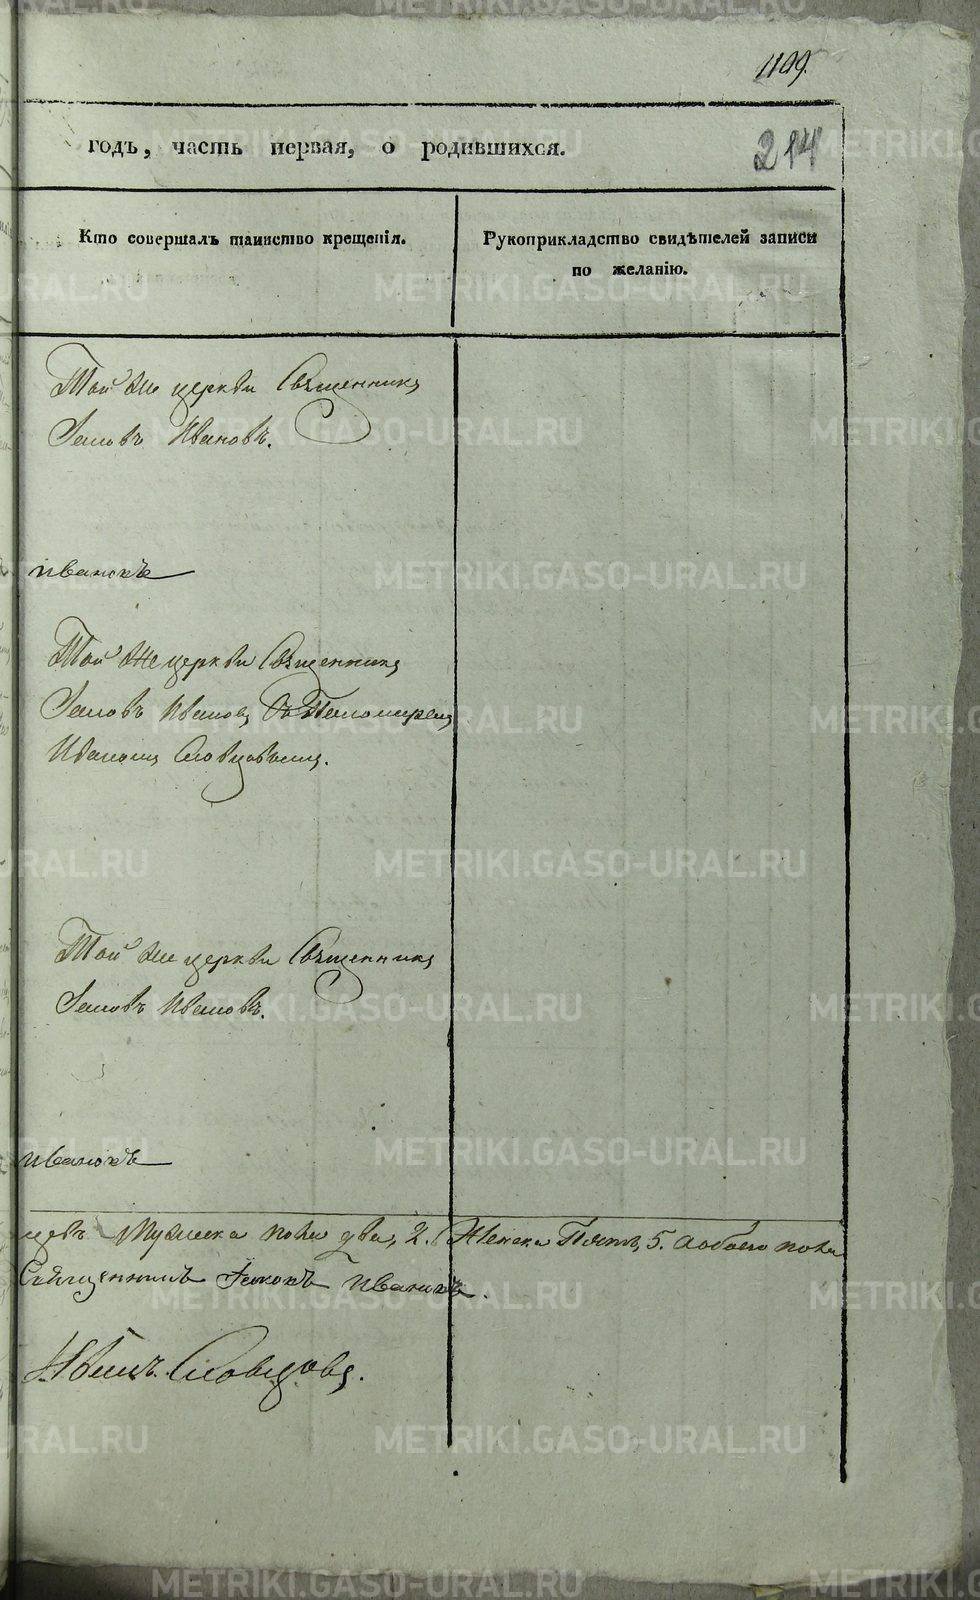 1199.
годъ, часть первая, о родившихся.
214
Кто совершалъ таинство крещенія.
Рукоприкладство свидѣтелей записи
по желанію.
Той же церкви Священникъ
Іаковъ Ивановъ.
Ивановъ
Той же церкви Священникъ
Іаковъ Ивановъ съ Пономаремъ
Иваномъ Словцовымъ.
Той же церкви Священникъ
Іаковъ Ивановъ.
Ивановъ
Мужеска пола два, 2. Женска Пять, 5. а обоего пола
Священникъ Іаковъ Ивановъ.
Иванъ Словцовъ.
METRIKI.GASO-URAL.RU